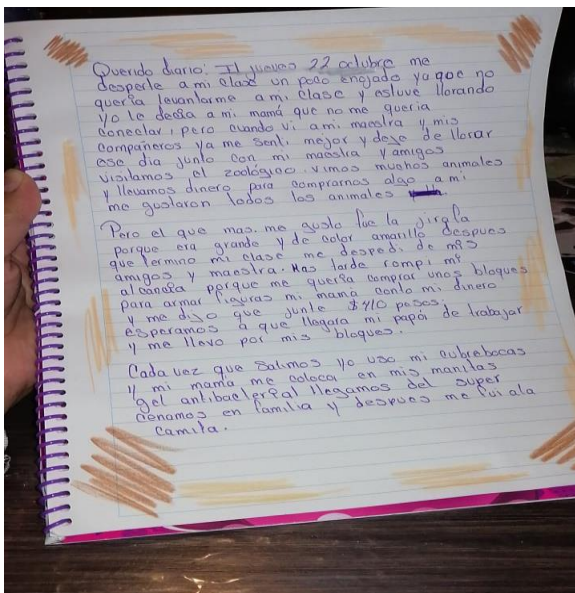 Querido diario: El jueves 22 octubre me
desperte a mi clase un poco enojado ya que no
quería levantarme a mi clase y estuve llorando
yo le decía a mi mamá que no me quería
conectar, pero cuando vi a mi maestra y mis
compañeros ya me sentí mejor y deje de llorar
ese día junto con mi maestra y amigos
visitamos el zoológico. vimos muchos animales
y llevamos dinero para comprarnos algo a mi
me gustaron todos los animales
Pero el que mas me gusto fue la jirafa
porque era grande y de color amarillo despues
que termino mi clase me despedi de mis
amigos y maestra. Mas tarde rompi mi
alcancía porque me quería comprar unos bloques
para armar figuras mi mamá conto mi dinero
y me dijo que junte $410 pesos,
esperamos a que llegara mi papá de trabajar
y me llevo por mis bloques.
Cada vez que salimos yo uso mi cubrebocas
y mi mamá me coloca en mis manitas
gel antibacterial llegamos del super
cenamos en familia y despues me fui ala
camita.